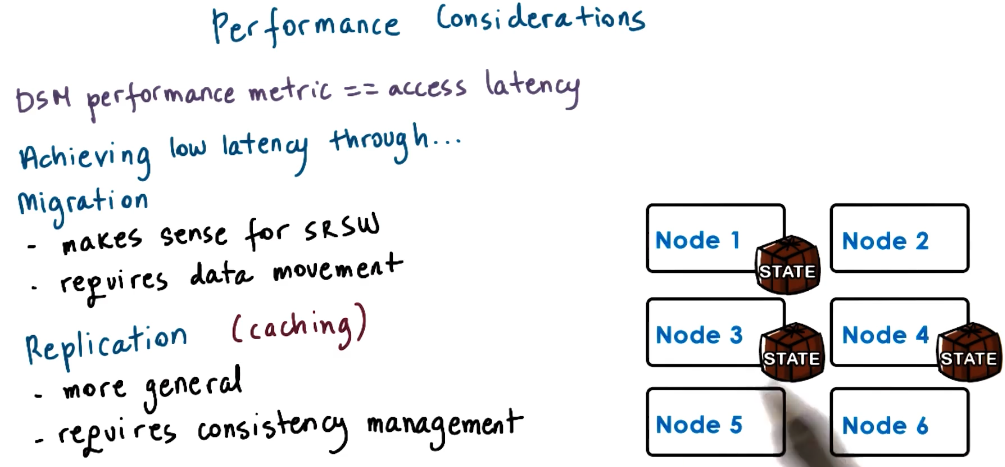 Performance Considerations
DSM performance metric == access latency
Achieving low latency through...
Migration
- makes sense for SRSW
- requires data movement
Replication (caching)
- more general
- requires consistency management
Node 1
STATE
Node 2
Node 3
STATE
Node 4
STATE
Node 5
Node 6